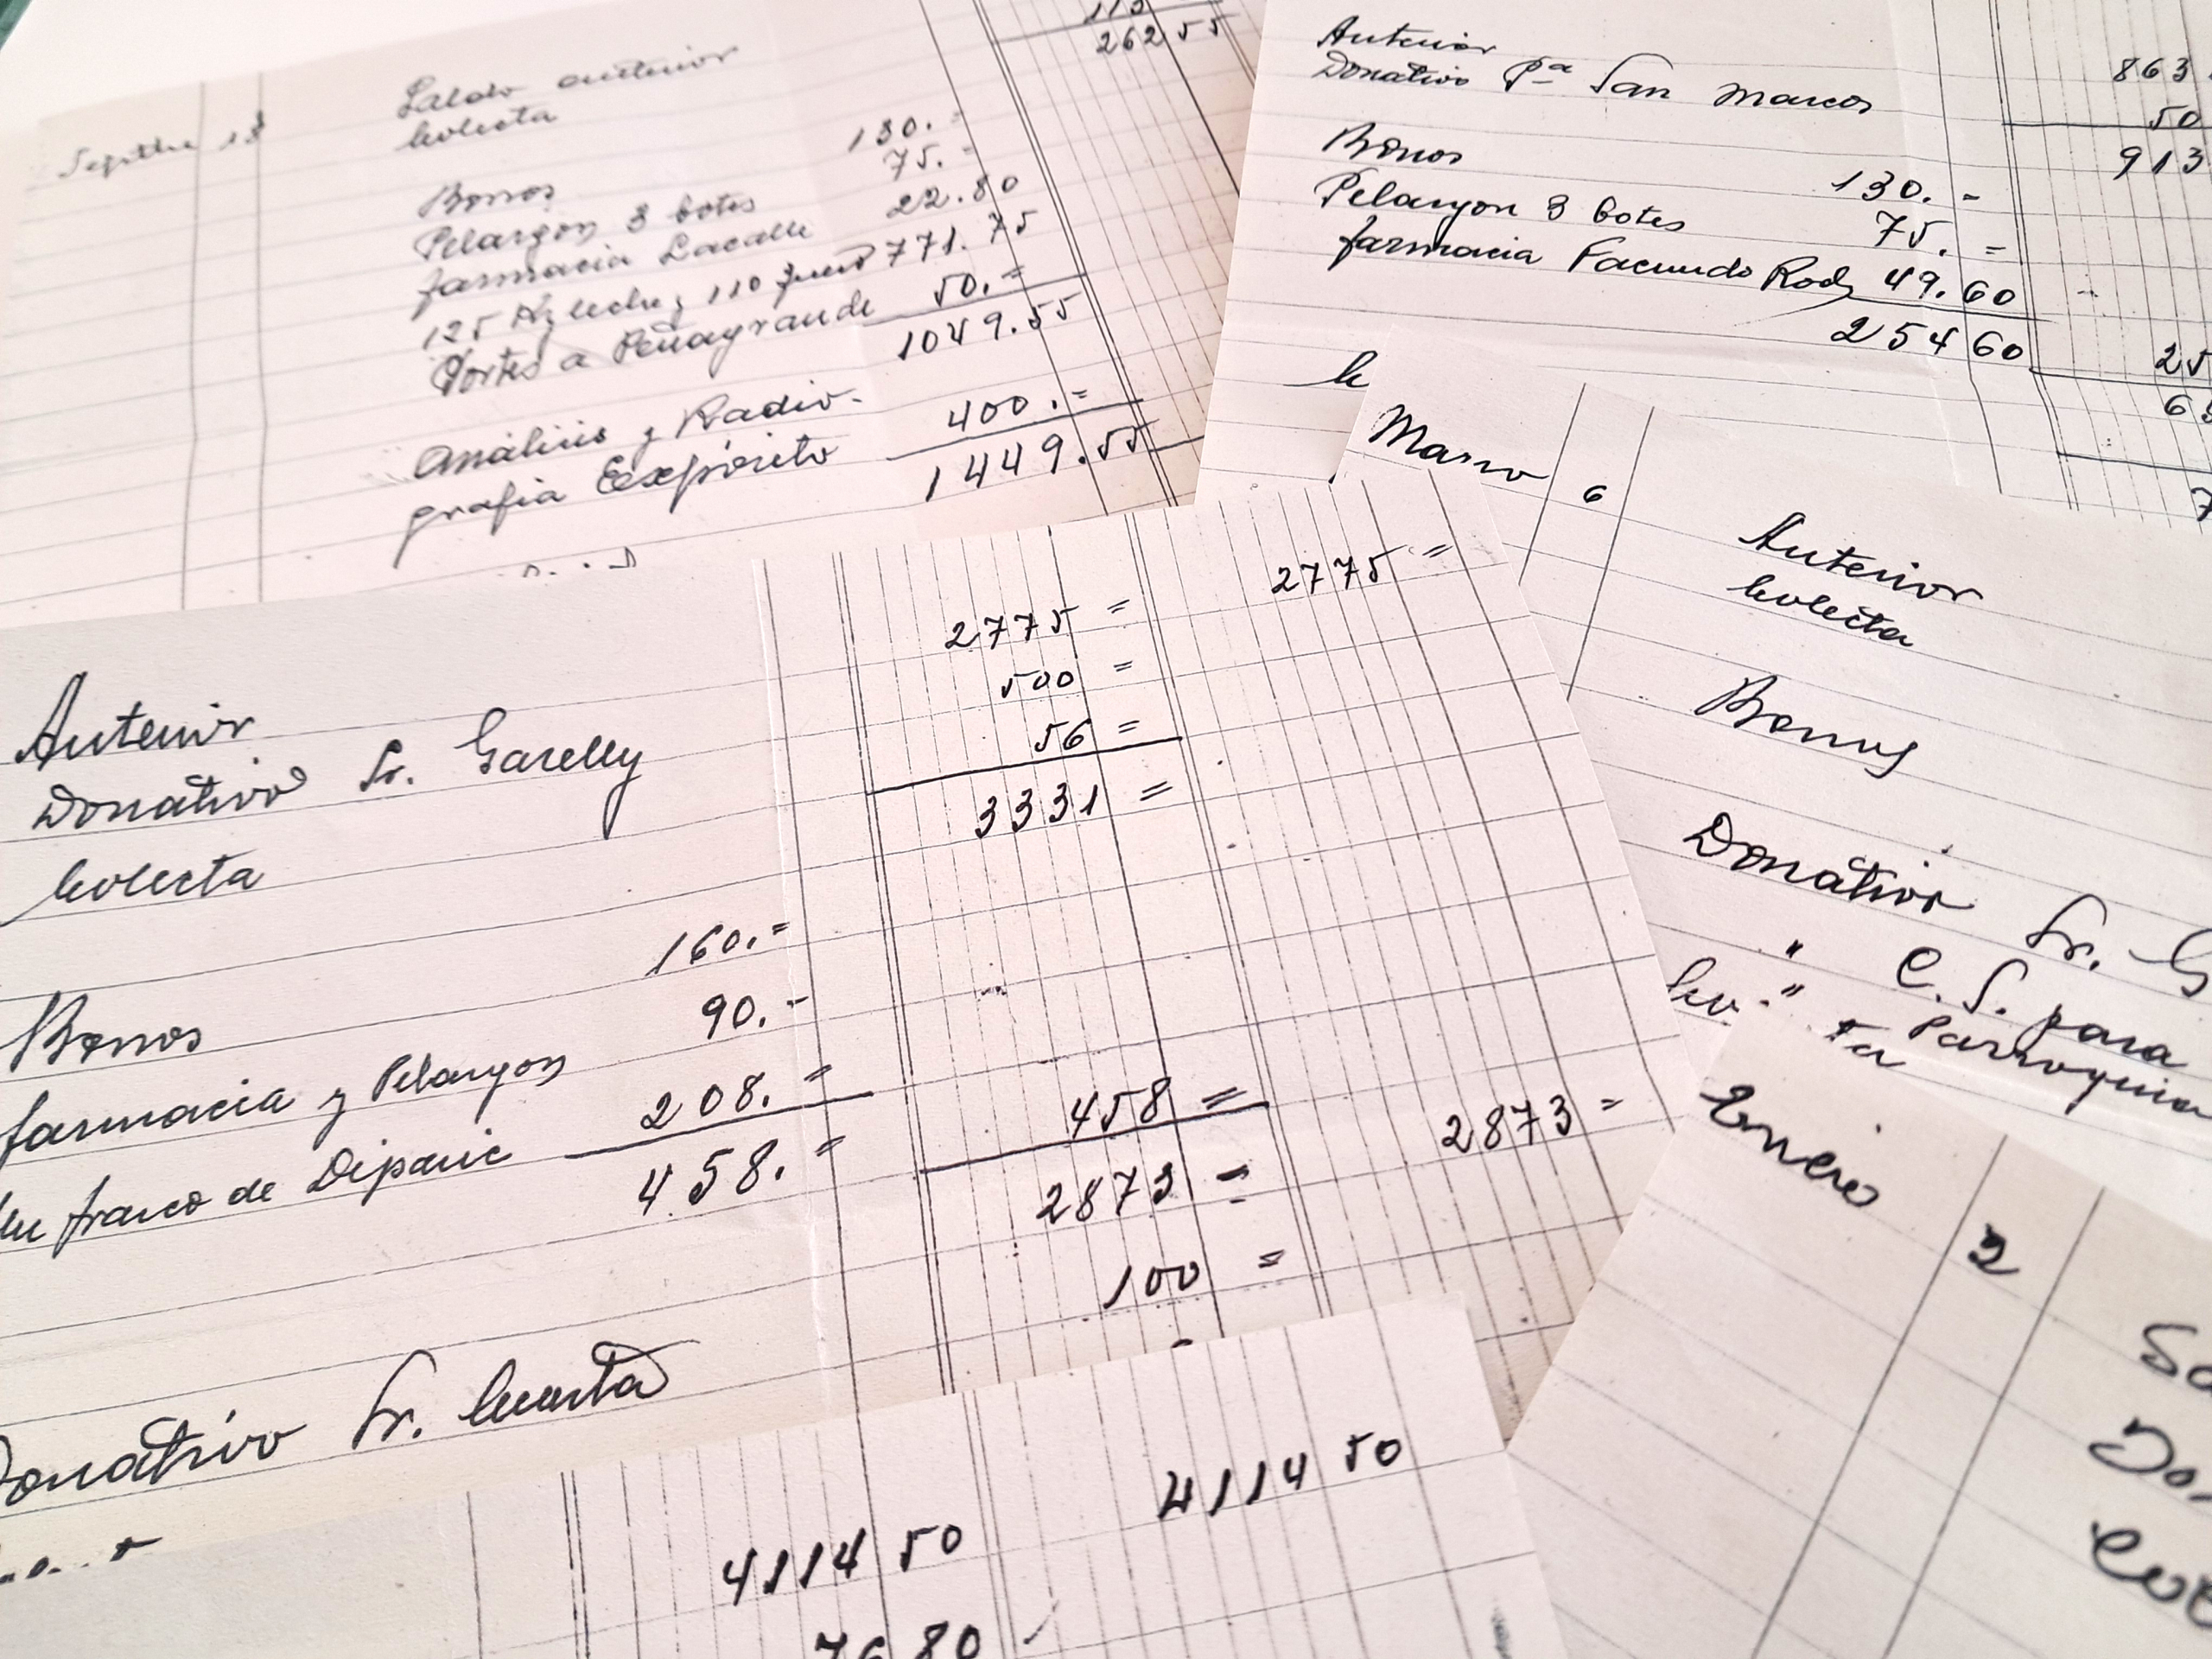 262 55
Septbre 13
Saldo anterior
Colecta
Bonos 130.=
Pelargón 3 botes 75.=
farmacia Lacalle 22.80
125 Kg leche y 110 771.75
Portes a Peñagrande 50.=
1049.55
Análisis y Radio-
grafia Expósito 400.=
1449.55
Anterior 863
Donativo Pª San Marcos 50
913
Bonos 130.=
Pelargon 3 botes 75.=
farmacia Facundo Rod 49.60
254 60 25
6
7
Marzo 6
Anterior
Colecta
Bonos
Donativo Sr. G
" C. S. para
" Parroquia
ta
2775 = 2775 =
Anterior
Donativo Sr. Garelly 500 =
Colecta 56 =
3331 =
Bonos 160.=
farmacia y Pelargon 90.-
un frasco de Diparic 208.=
458.= 458 =
2873 = 2873 =
Donativo Sr. Cuesta 100 =
Enero 2
Sa
Don
Col
4114 50 4114 50
76 80